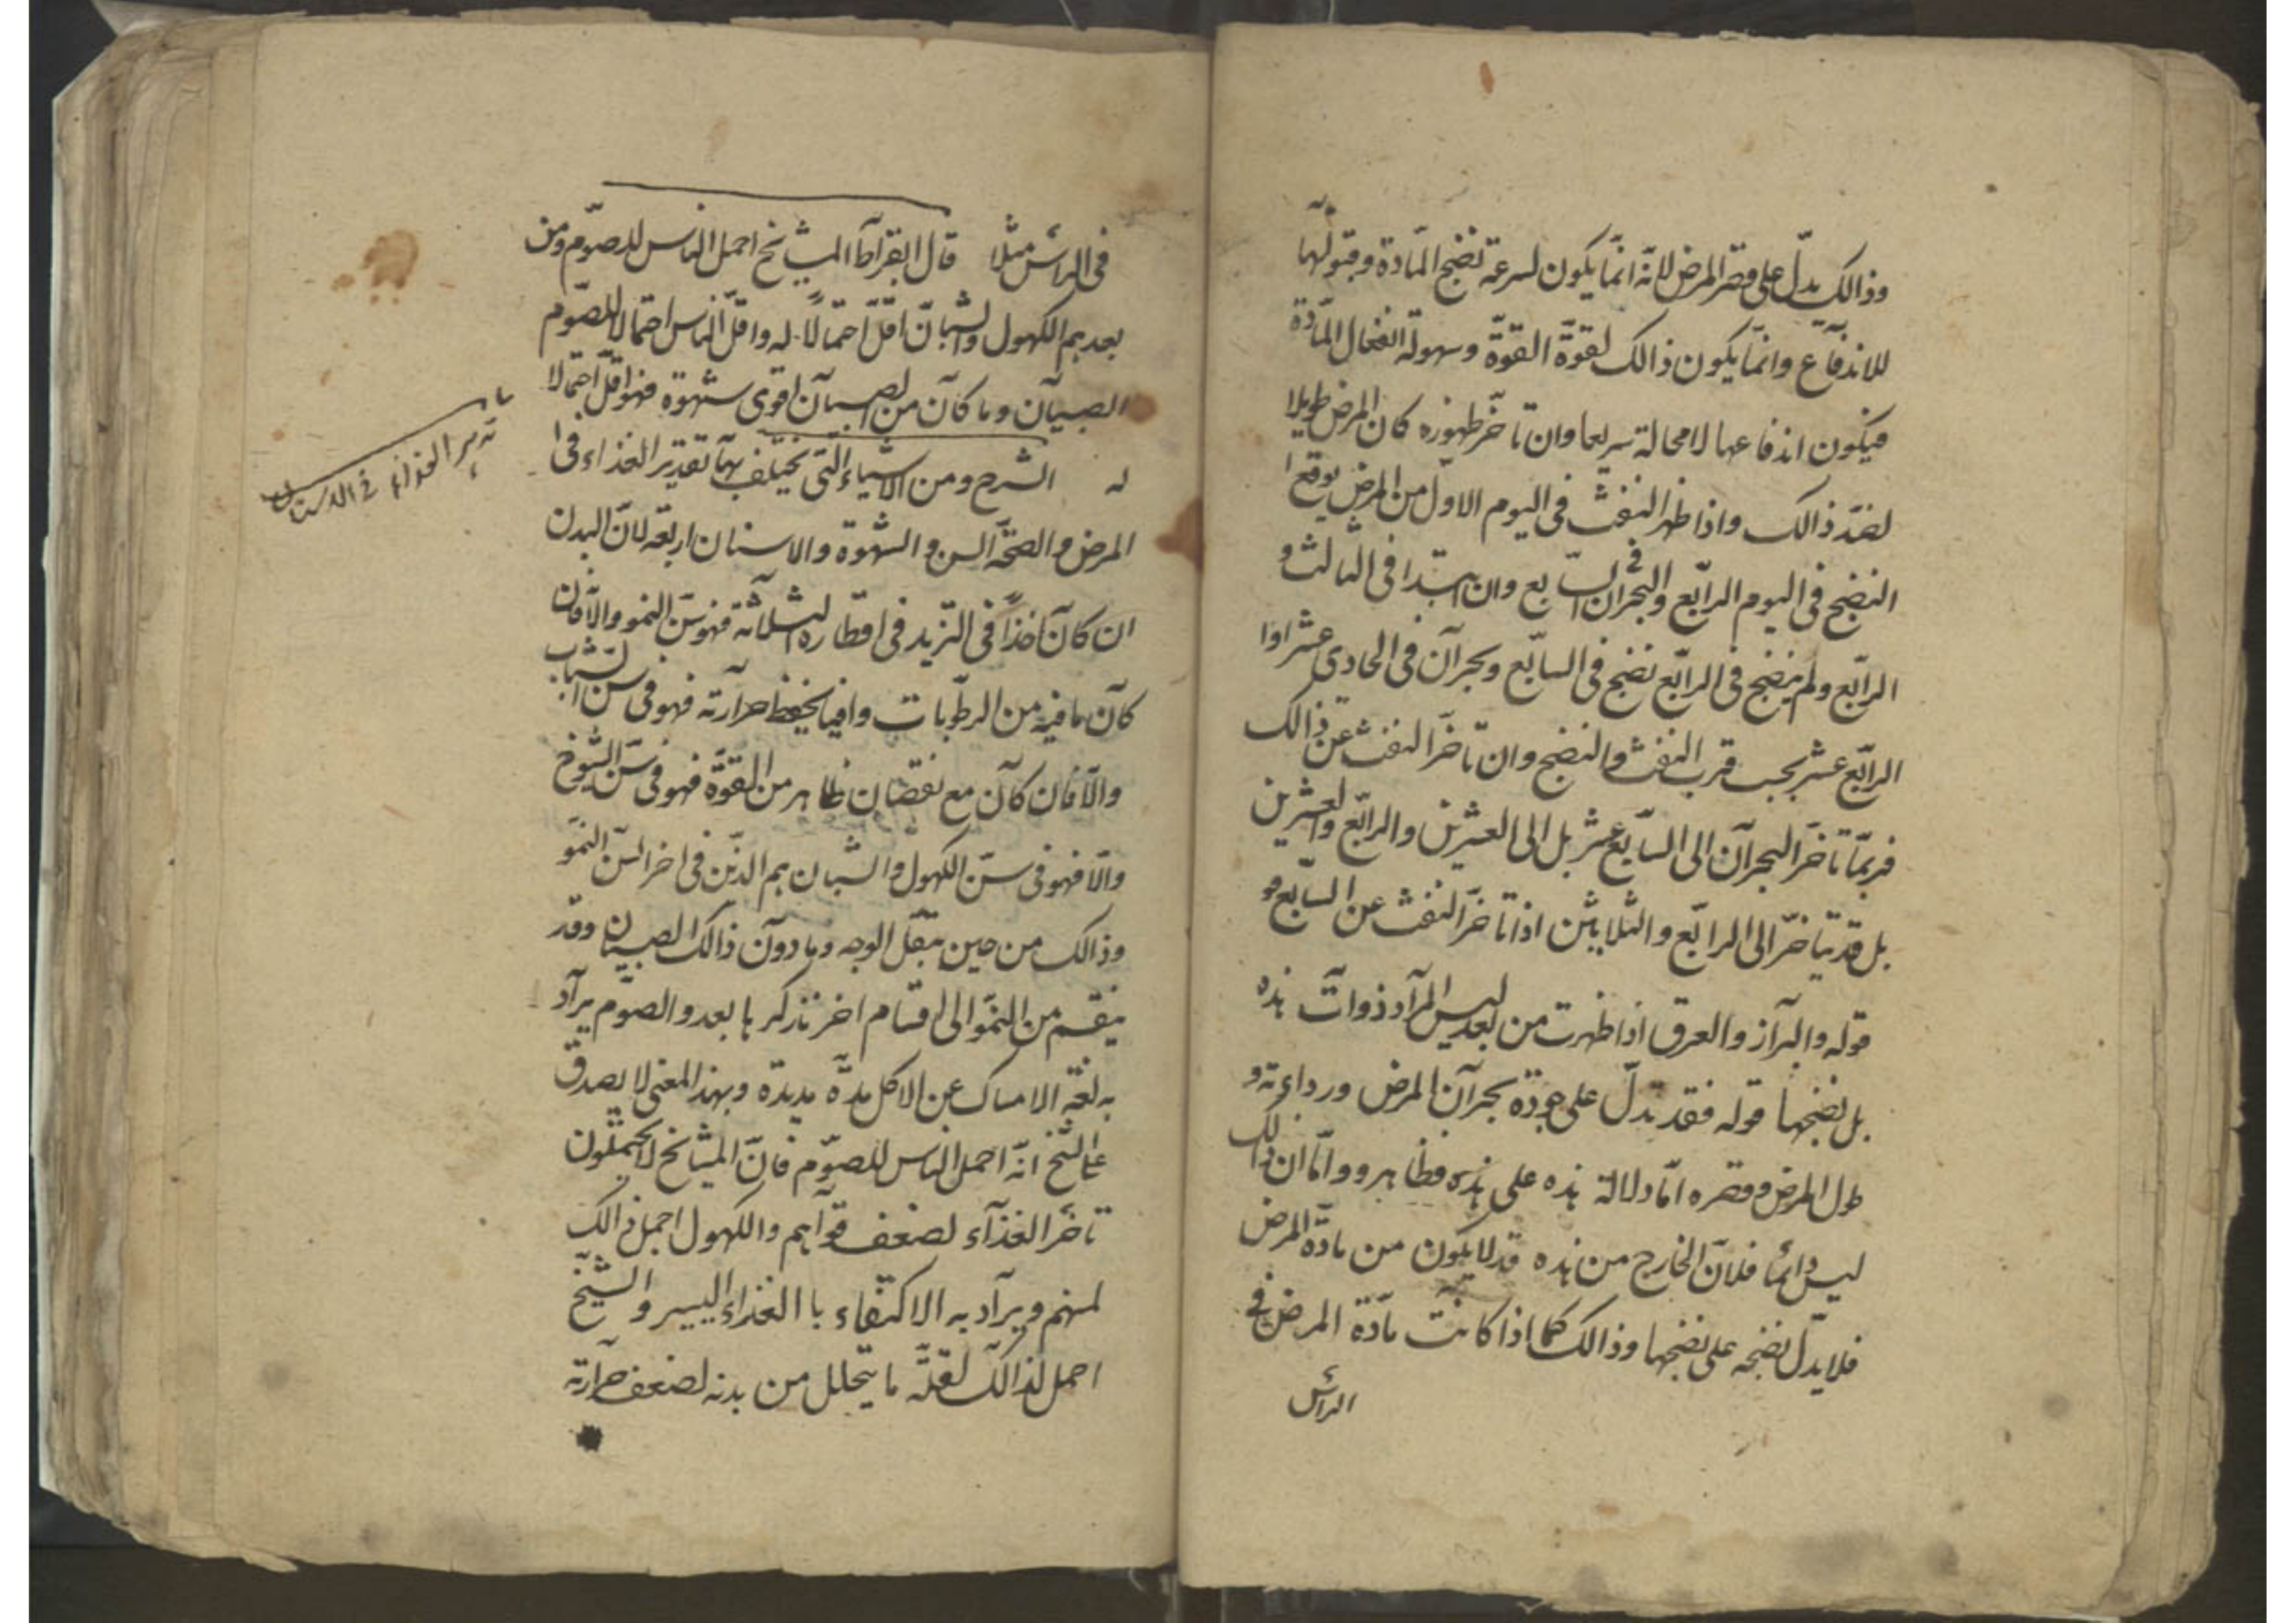 وذالك يدلّ على قصر المرض لانّه انّما يكون لسرعة نضج المادّة وقبولها
للاندفاع وانّما يكون ذالك لقوّة القوّة وسهولة انفعال المادّة
فيكون اندفاعها لامحالة سريعا وان تأخّر ظهوره كان المرض طويلا
لضدّ ذالك واذا ظهر النفث فى اليوم الاوّل من المرض يوقع
النضج فى اليوم الرابع والبحران فى السابع وان ابتدا فى الثالث و
الرابع ولم ينضج فى الرابع نضج فى السابع وبحران فى الحادى عشر اوا
الرابع عشر بحسب قرب النفث والنضج وان تأخّر النفث عن ذالك
فربمّا تأخّر البحران الى السابع عشر بل الى العشرين والرابع والعشرين
بل قد يتأخّر الى الرابع والثلاثين اذا تأخّر النفث عن السابع
قوله والبراز والعرق اذا ظهرت من بعد ليس المراد ذوات هذه
بل نضجها قوله فقد تدلّ على جودة بحران المرض ورداءته و
طول المرض وقصره امّا دلالة هذه على هذه فظاهر وامّا ان ذالك
ليس دائمًا فلانّ الخارج من هذه قد لا يكون من مادّة المرض
فلا يدلّ نضجه على نضجها وذالك كما اذا كانت مادّة المرض فى
الراس
فى الراس مثلا قال ابقراط المشايخ احمل الناس للصوم ومن
بعدهم الكهول والشبان اقلّ احتمالًا له واقلّ الناس احتمالا للصوم
الصبيان وما كان من الصبيان اقوى شهوة فهو اقلّ احتمالا
له الشرح ومن الاشياء التى يختلف بها تقدير الغذاء فى
المرض والصحّة السن والشهوة والاسنان اربعة لانّ البدن
ان كان آخذًا فى التزيد فى اقطاره الثلاثة فهو سنّ النمو والّا فان
كان ما فيه من الرطوبات وافيا بحفظ حرارته فهو فى سن الشباب
والّا فان كان مع نقصان ظاهر من القوّة فهو فى سنّ الشيوخ
والّا فهو فى سنّ الكهول والشبان هم الذين فى اخر السنّ النموّ
وذالك من حين تبقّل الوجه وما دون ذالك الصبيان وقد
ينقسم من النموّ الى اقسام اخر نذكرها بعد والصوم يراد
به لغة الامساك عن الاكل مدّة مديدة وبهذا المعنى لا يصدق
على الشيخ انّه احمل الناس للصوم فانّ المشايخ لا يحتملون
تأخّر الغذاء لضعف قواهم والكهول احمل ذالك
لمنهم ويراد به الاكتفاء با الغذاء اليسير والشيخ
احمل لذالك لقلّة ما يتحلل من بدنه لضعف حرارته
تدبير الغذاء فى الاسنان